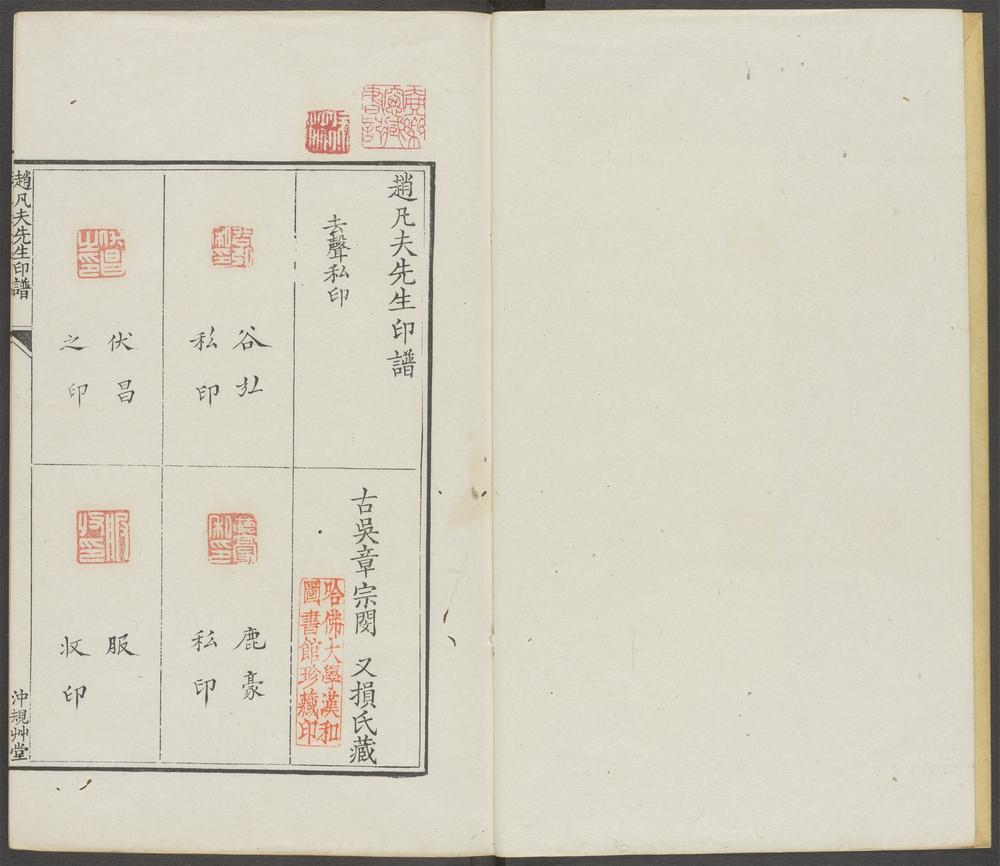 趙凡夫先生印譜
古吳章宗閔 又損氏藏
去聲私印
哈佛大學漢和
圖書館珍藏印
谷弘
私印
鹿豪
私印
伏昌
之印
服
収印
趙凡夫先生印譜
沖規艸堂